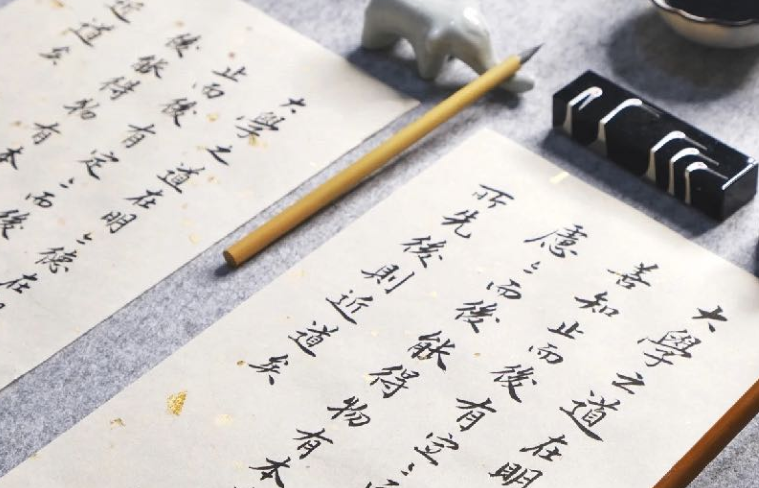 大學之道在明
善知止而後有定〻
慮〻而後能得物有本
所先後則近道矣
大學之道在明〻德在
止而後有定〻而後
後能得物有本
近道矣